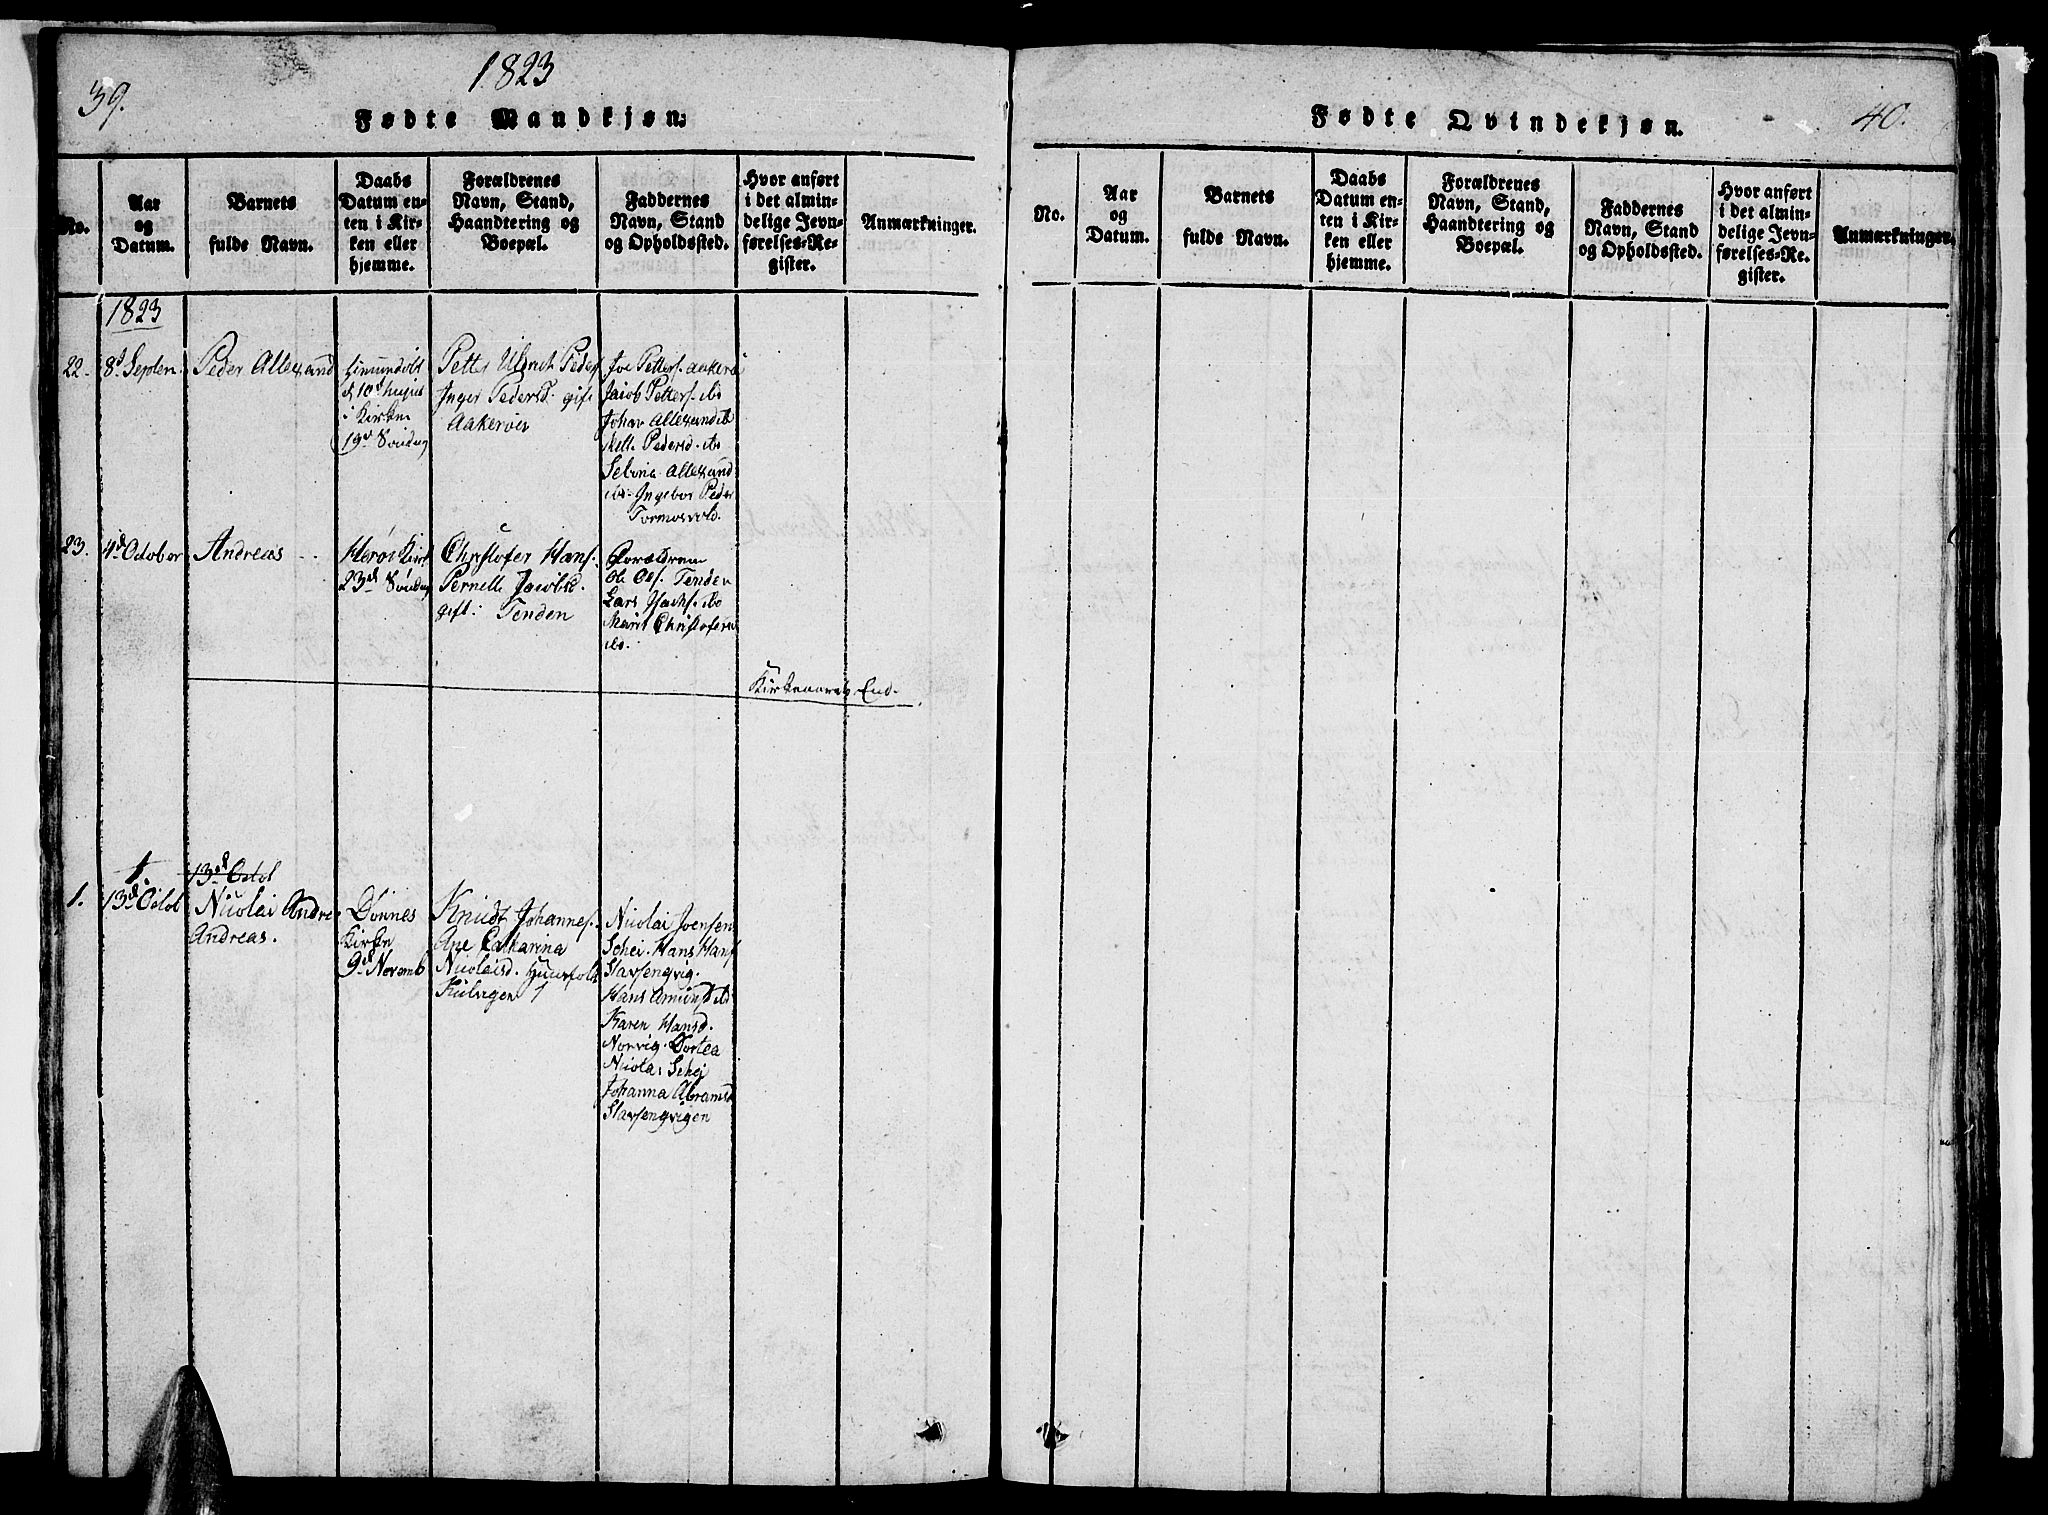 39.
1823
Fødte Mandkjøn.
No.
Aar
og
Datum.
Barnets
fulde Navn.
Daabs
Datum en-
ten i Kir-
ken eller
hjemme.
Forældrenes
Navn, Stand,
Haandtering og
Boepæl.
Faddernes
Navn, Stand
og Opholdssted.
Hvor anført
i det almin-
delige Jevn-
førelses-Re-
gister.
Anmærkninger.
1823
22. 8d Septen. Peder Allexand
d 10d hujus
i Kirken
19d Søndag
Petter Peders
Inger Pedersd. gift
Aakerøen
Joe Petters. Aakerø
Jacob Petters. ibd
Johan Allexand ib
Mette Pedersd. ibd
Selvina Allexand
ibd. Ingebor Peder
Tormosvold.
23. 4d October Andreas
Herøe Kirk
23d Søndag
Christofer Hans.
Pernelle Jacobsd.
gift. Tenden
Forældrene
Ole Ols. Tenden
Lars ibd
Marit Christofersd
ibd.
Kirkeaarets End.
1.
13d Octob
1. 13d Octob Nicolai Andre
Andreas.
Dønnes
Kirke
9d Novemb
Knudt Johannes.
Ane Catharina
Nicolaisd. Huusfolk
Kulvigen
Nicolai Joensen
Schei. Hans Hans
Slavsengvig.
Hans Amunds ibd
Karen Hansd.
Norvig. Dortea
Nicolai Schei
Johanna Abramsd
Slavsengvigen
40.
Fødte Qvindekjøn.
No.
Aar
og
Datum.
Barnets
fulde Navn.
Daabs
Datum en-
ten i Kir-
ken eller
hjemme.
Forældrenes
Navn, Stand,
Haandtering og
Boepæl.
Faddernes
Navn, Stand
og Opholdssted.
Hvor anført
i det almin-
delige Jevn-
førelses-Re-
gister.
Anmærkninger.